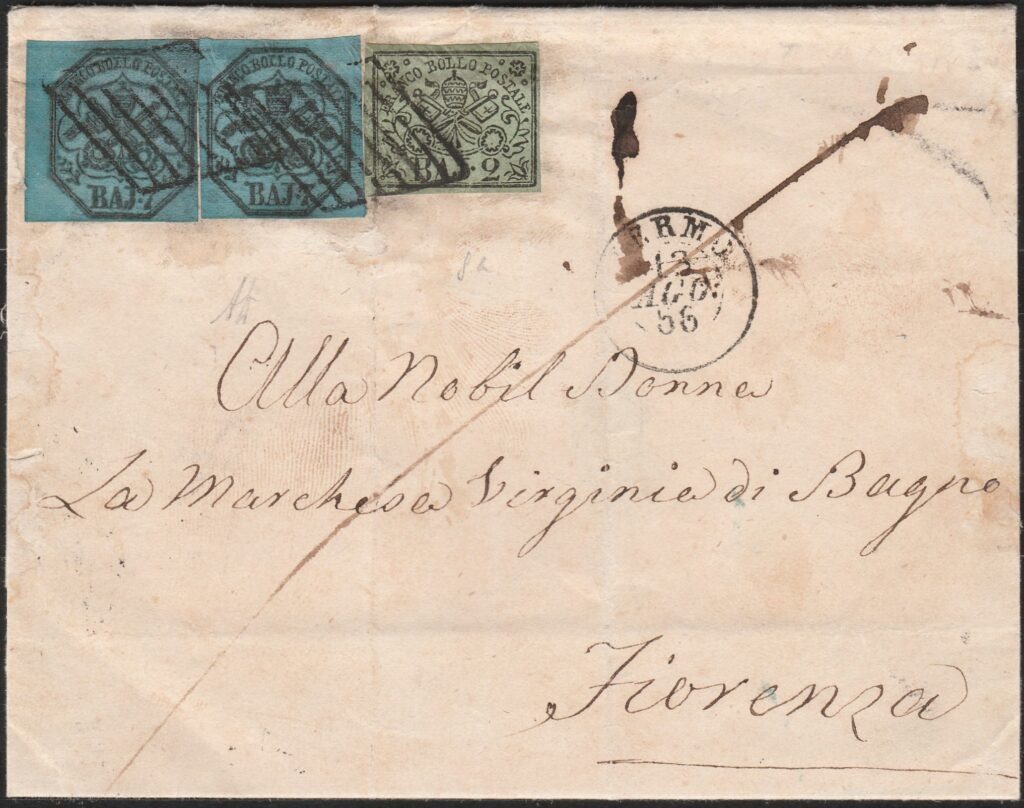 FRANCO BOLLO POSTALE
BAJ. 7
FRANCO BOLLO POSTALE
BAJ. 7
FRANCO BOLLO POSTALE
BAJ. 2
FERMO
13
AGO.
56
Alla Nobil Donna
La Marchesa Virginia di Bagno
Fiorenza